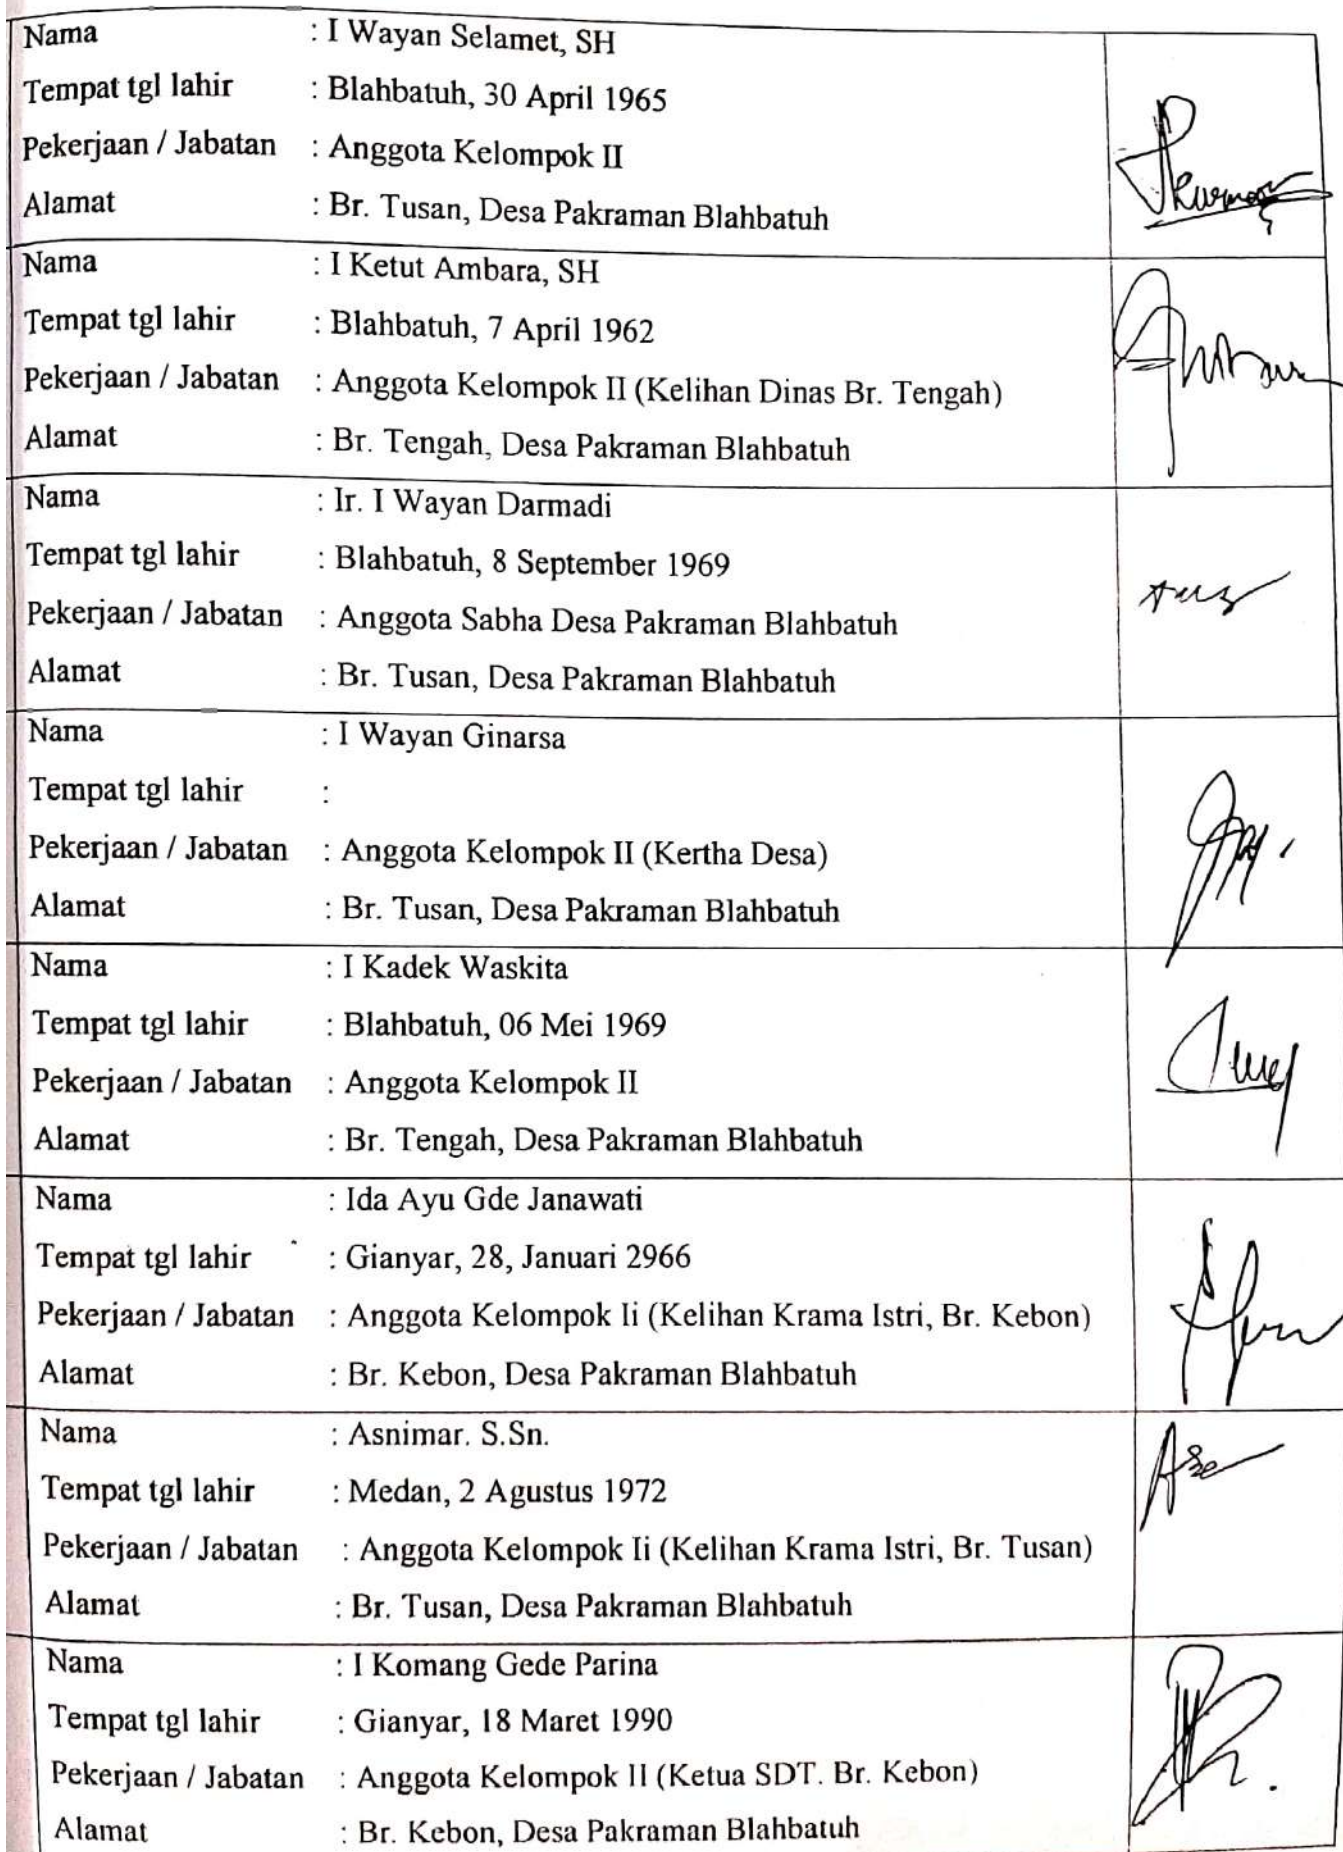 Nama : I Wayan Selamet, SH
Tempat tgl lahir : Blahbatuh, 30 April 1965
Pekerjaan / Jabatan : Anggota Kelompok II
Alamat : Br. Tusan, Desa Pakraman Blahbatuh
Nama : I Ketut Ambara, SH
Tempat tgl lahir : Blahbatuh, 7 April 1962
Pekerjaan / Jabatan : Anggota Kelompok II (Kelihan Dinas Br. Tengah)
Alamat : Br. Tengah, Desa Pakraman Blahbatuh
Nama : Ir. I Wayan Darmadi
Tempat tgl lahir : Blahbatuh, 8 September 1969
Pekerjaan / Jabatan : Anggota Sabha Desa Pakraman Blahbatuh
Alamat : Br. Tusan, Desa Pakraman Blahbatuh
Nama : I Wayan Ginarsa
Tempat tgl lahir :
Pekerjaan / Jabatan : Anggota Kelompok II (Kertha Desa)
Alamat : Br. Tusan, Desa Pakraman Blahbatuh
Nama : I Kadek Waskita
Tempat tgl lahir : Blahbatuh, 06 Mei 1969
Pekerjaan / Jabatan : Anggota Kelompok II
Alamat : Br. Tengah, Desa Pakraman Blahbatuh
Nama : Ida Ayu Gde Janawati
Tempat tgl lahir : Gianyar, 28, Januari 2966
Pekerjaan / Jabatan : Anggota Kelompok Ii (Kelihan Krama Istri, Br. Kebon)
Alamat : Br. Kebon, Desa Pakraman Blahbatuh
Nama : Asnimar. S.Sn.
Tempat tgl lahir : Medan, 2 Agustus 1972
Pekerjaan / Jabatan : Anggota Kelompok Ii (Kelihan Krama Istri, Br. Tusan)
Alamat : Br. Tusan, Desa Pakraman Blahbatuh
Nama : I Komang Gede Parina
Tempat tgl lahir : Gianyar, 18 Maret 1990
Pekerjaan / Jabatan : Anggota Kelompok II (Ketua SDT. Br. Kebon)
Alamat : Br. Kebon, Desa Pakraman Blahbatuh